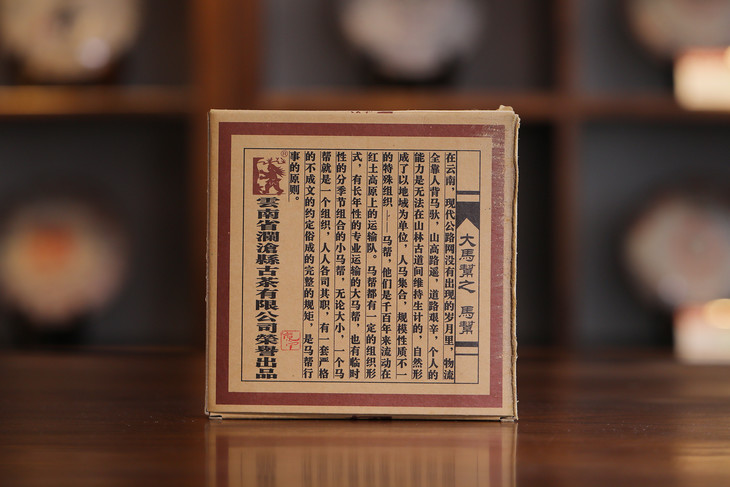 大馬幫之 馬幫
在云南，现代公路网没有出现的岁月里，物流
全靠人背马驮，山高路遥，道路艰辛，个人的
能力是无法在山林古道间维持生计的，自然形
成了以地域为单位，人马集合，规模性质不一
的特殊组织——马帮，他们是千百年来流动在
红土高原上的运输队。马帮都有一定的组织形
式，有长年性的专业运输的大马帮，也有临时
性的分季节组合的小马帮，无论大小，一个马
帮就是一个组织，人人各司其职，有一套严格
的不成文的约定俗成的完整的规矩，是马帮行
事的原则。
雲南省瀾滄縣古茶有限公司榮譽出品